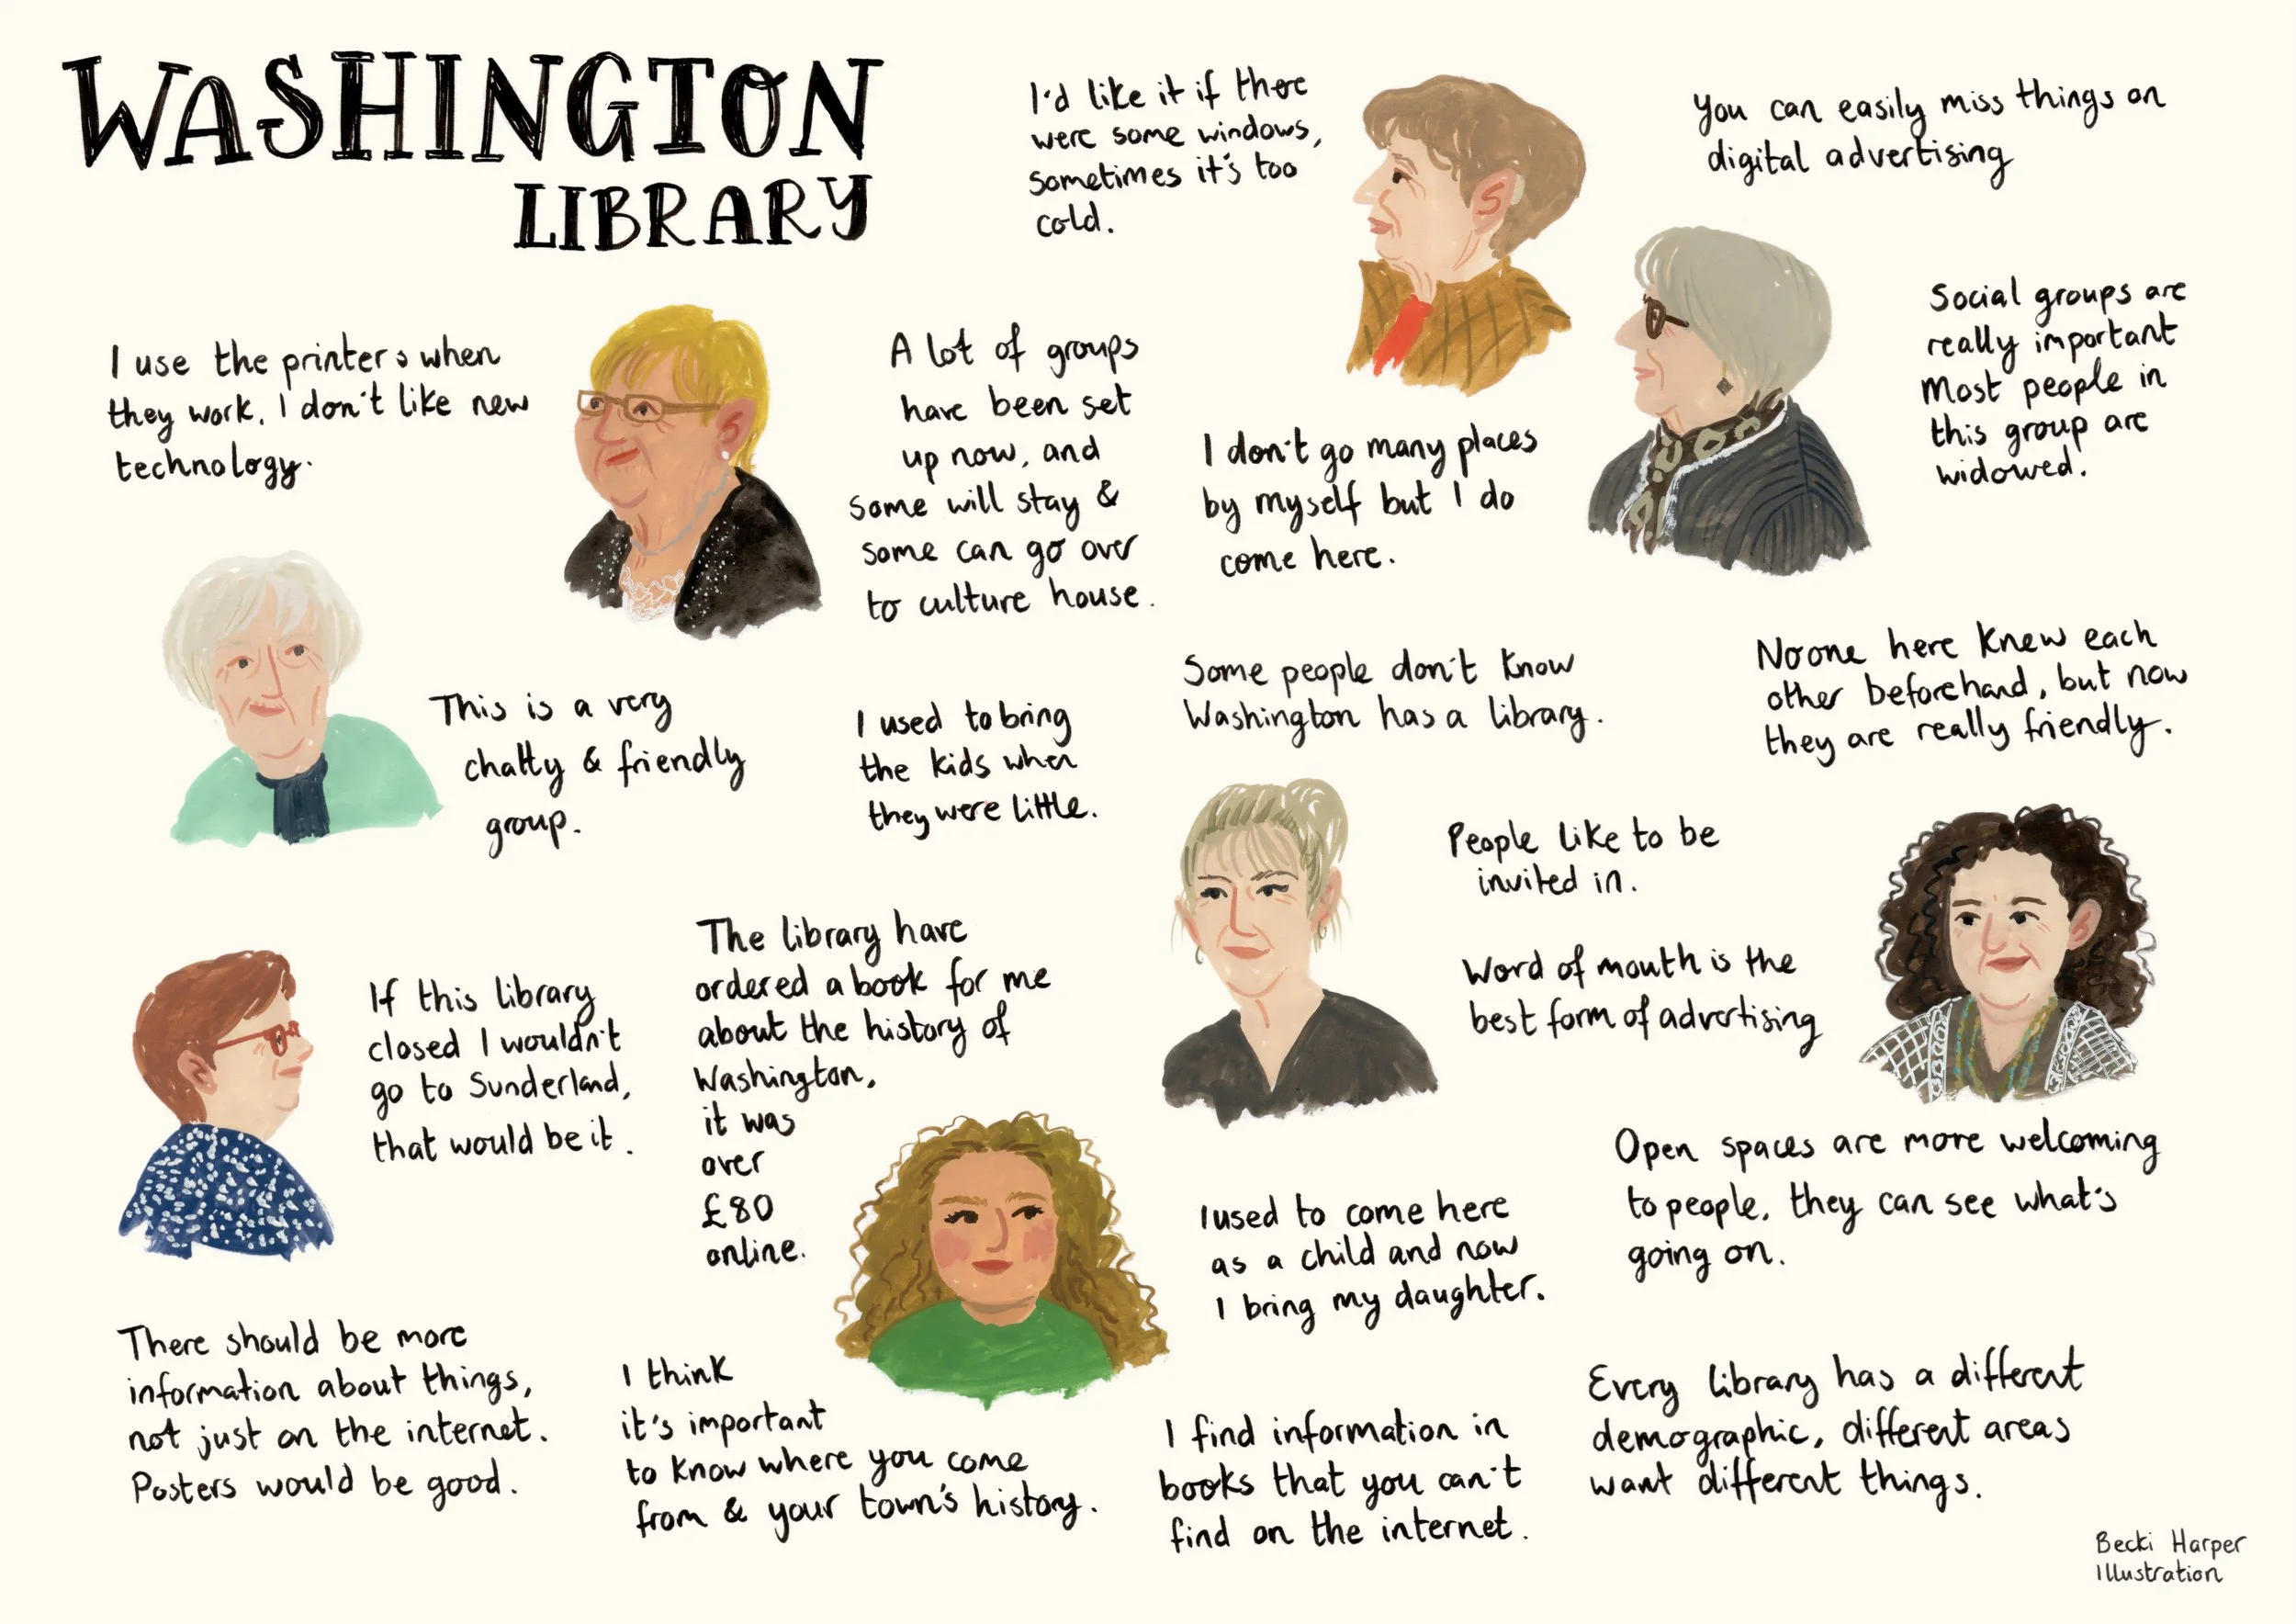 WASHINGTON
LIBRARY
I'd like it if there
were some windows,
sometimes it's too
cold.
You can easily miss things on
digital advertising
I use the printers when
they work. I don't like new
technology.
A lot of groups
have been set
up now, and
some will stay &
some can go over
to culture house.
I don't go many places
by myself but I do
come here.
Social groups are
really important
Most people in
this group are
widowed.
This is a very
chatty & friendly
group.
I used to bring
the kids when
they were little.
Some people don't know
Washington has a library.
Noone here knew each
other beforehand, but now
they are really friendly.
People like to be
invited in.
Word of mouth is the
best form of advertising
If this library
closed I wouldn't
go to Sunderland,
that would be it.
The library have
ordered a book for me
about the history of
Washington,
it was
over
£80
online.
I used to come here
as a child and now
I bring my daughter.
Open spaces are more welcoming
to people, they can see what's
going on.
There should be more
information about things,
not just on the internet.
Posters would be good.
I think
it's important
to know where you come
from & your town's history.
I find information in
books that you can't
find on the internet.
Every library has a different
demographic, different areas
want different things.
Becki Harper
Illustration